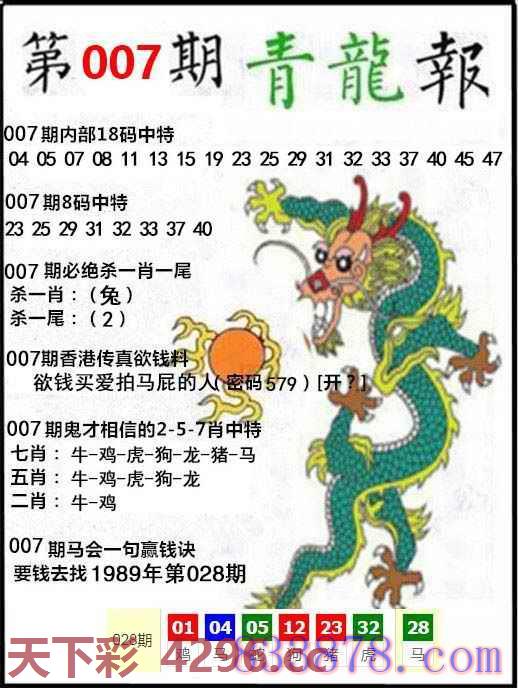 第007期青龍報
007期内部18码中特
04 05 07 08 11 13 15 19 23 25 29 31 32 33 37 40 45 47
007期8码中特
23 25 29 31 32 33 37 40
007期必绝杀一肖一尾
杀一肖：（兔）
杀一尾：（2）
007期香港传真欲钱料
欲钱买爱拍马屁的人(密码579)[开？]
007期鬼才相信的2-5-7肖中特
七肖：牛-鸡-虎-狗-龙-猪-马
五肖：牛-鸡-虎-狗-龙
二肖：牛-鸡
007期马会一句赢钱诀
要钱去找1989年第028期
028期 01 04 05 12 23 32 28
鸡 马 蛇 狗 猪 虎 马
天下彩 4296.cc